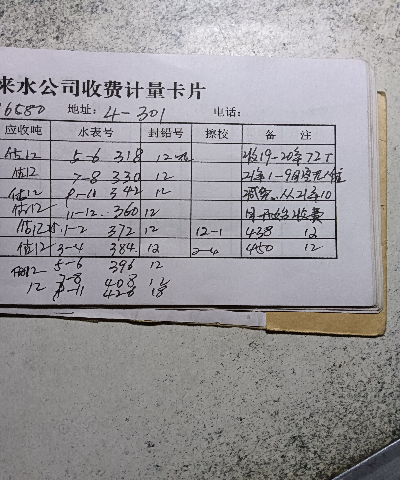 来水公司收费计量卡片
16580 地址: 4-301 电话:
应收吨 水表号 封铅号 擦校 备 注
估12 5-6 318 12元 收19-20年72T
估12 7-8 330 12 21年1-9月
估12 9-10 342 12 减免..从21年10
估12 11-12 360 12 月开始收费
估12 1-2 372 12 12-1 438 12
估12 3-4 384 12 2-4 450 12
估12 5-6 396 12
7-8 408 12
12 -11 420